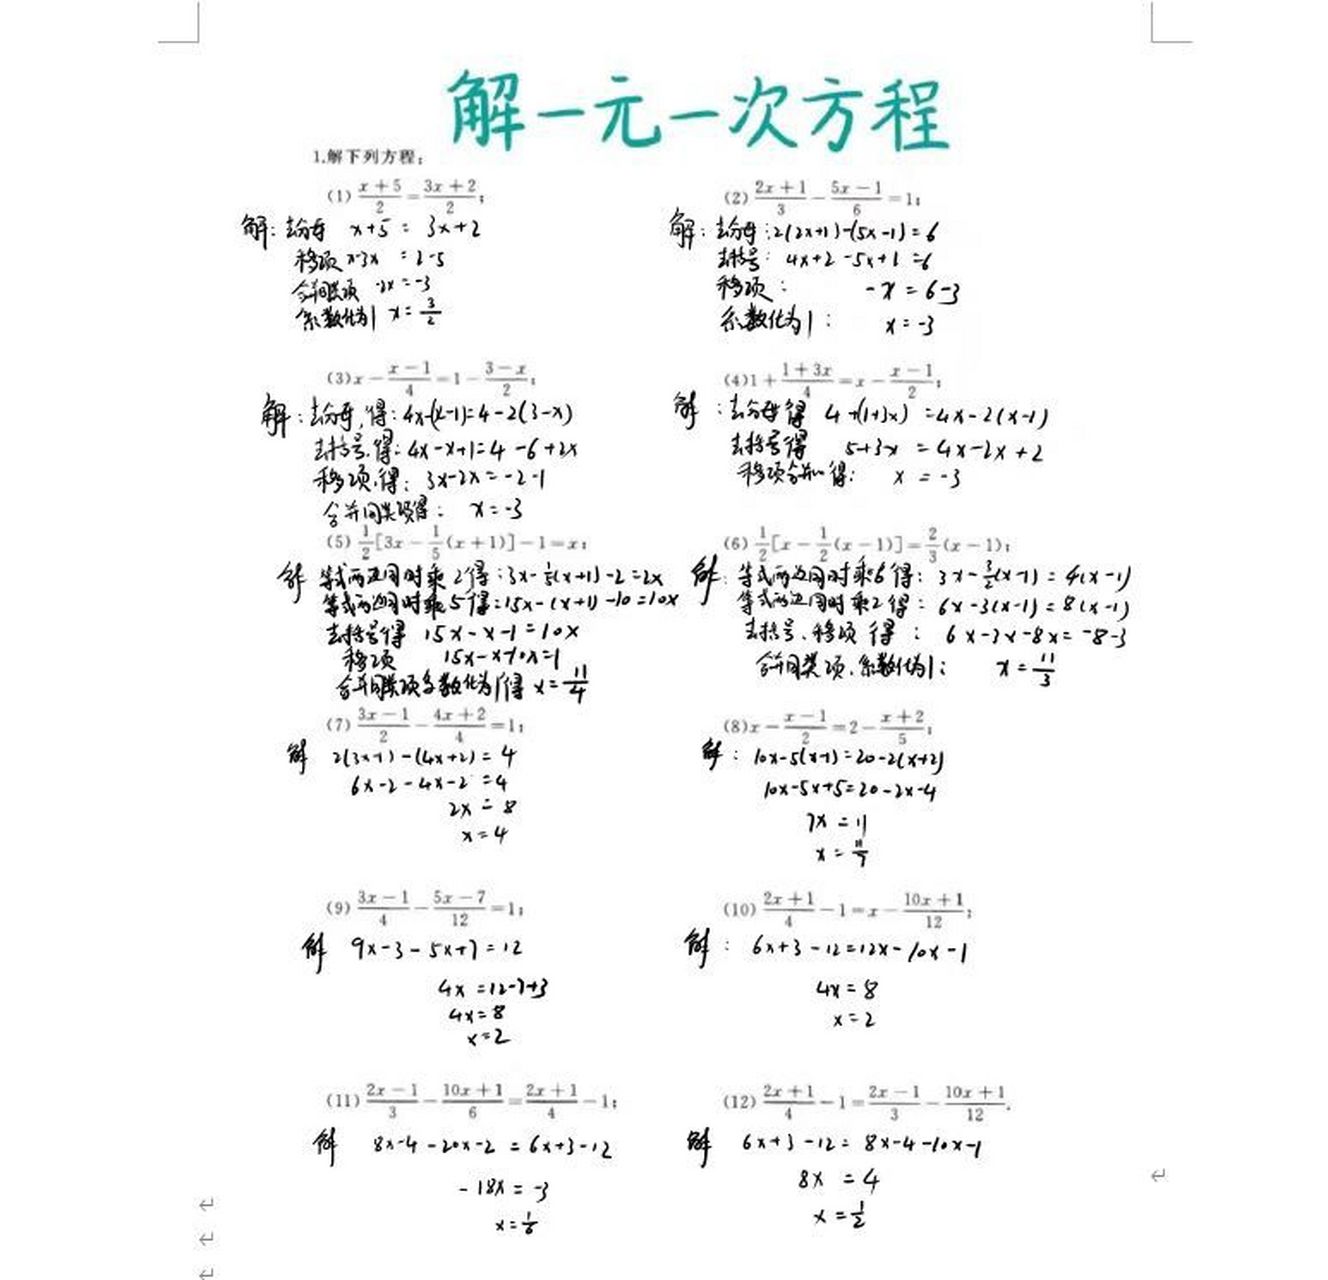 解一元一次方程
1.解下列方程:
(1) \frac{x+5}{2}=\frac{3x+2}{2};
解:去分母 x+5 = 3x+2
移项 x-3x = 2-5
合并同类项 -2x = -3
系数化为1 x = \frac{3}{2}
(2) \frac{2x+1}{3}-\frac{5x-1}{6}=1;
解:去分母:2(2x+1)-(5x-1)=6
去括号: 4x+2-5x+1=6
移项: -x=6-3
系数化为1: x=-3
(3) x-\frac{x-1}{4}=1-\frac{3-x}{2};
解:去分母,得:4x-(x-1)=4-2(3-x)
去括号,得:4x-x+1=4-6+2x
移项,得: 3x-2x=-2-1
合并同类项得: x=-3
(4) 1+\frac{1+3x}{4}=x-\frac{x-1}{2};
解:去分母得 4+(1+3x)=4x-2(x-1)
去括号得 5+3x=4x-2x+2
移项合并得: x=-3
(5) \frac{1}{2}[3x-\frac{1}{5}(x+1)]-1=x;
解 等式两边同时乘2得:3x-\frac{1}{5}(x+1)-2=2x
等式两边同时乘5得:15x-(x+1)-10=10x
去括号得 15x-x-1=10x
移项 15x-x-10x=1
合并同类项系数化为1得 x=\frac{11}{4}
(6) \frac{1}{2}[x-\frac{1}{2}(x-1)]=\frac{2}{3}(x-1);
解:等式两边同时乘6得: 3x-\frac{3}{2}(x-1)=4(x-1)
等式两边同时乘2得: 6x-3(x-1)=8(x-1)
去括号、移项得: 6x-3x-8x=-8-3
合并同类项、系数化为1: x=\frac{11}{3}
(7) \frac{3x-1}{2}-\frac{4x+2}{4}=1;
解 2(3x-1)-(4x+2)=4
6x-2-4x-2=4
2x=8
x=4
(8) x-\frac{x-1}{2}=2-\frac{x+2}{5};
解: 10x-5(x-1)=20-2(x+2)
10x-5x+5=20-2x-4
7x=11
x=\frac{11}{7}
(9) \frac{3x-1}{4}-\frac{5x-7}{12}=1;
解 9x-3-5x+7=12
4x=12-7+3
4x=8
x=2
(10) \frac{2x+1}{4}-1=x-\frac{10x+1}{12};
解: 6x+3-12=12x-10x-1
4x=8
x=2
(11) \frac{2x-1}{3}-\frac{10x+1}{6}=\frac{2x+1}{4}-1;
解 8x-4-20x-2=6x+3-12
-18x=-3
x=\frac{1}{6}
(12) \frac{2x+1}{4}-1=\frac{2x-1}{3}-\frac{10x+1}{12}.
解 6x+3-12=8x-4-10x-1
8x=4
x=\frac{1}{2}